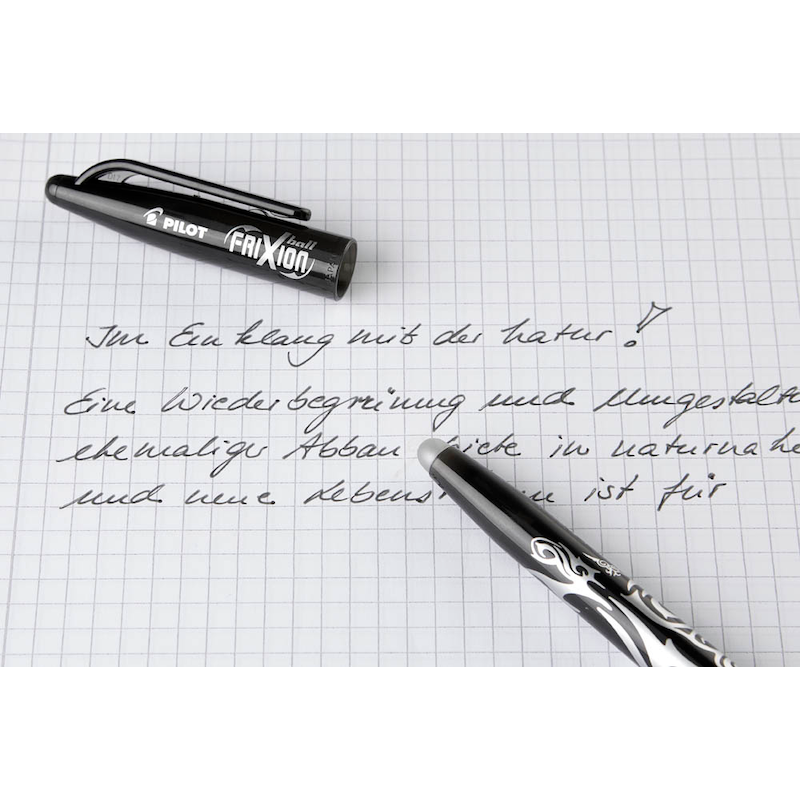 PILOT
FRIXION ball
Im Einklang mit der Natur!
Eine Wiederbegrünung und Umgestaltu
ehemaliger Abbau biete in naturnahe
und neue Lebens n ist für